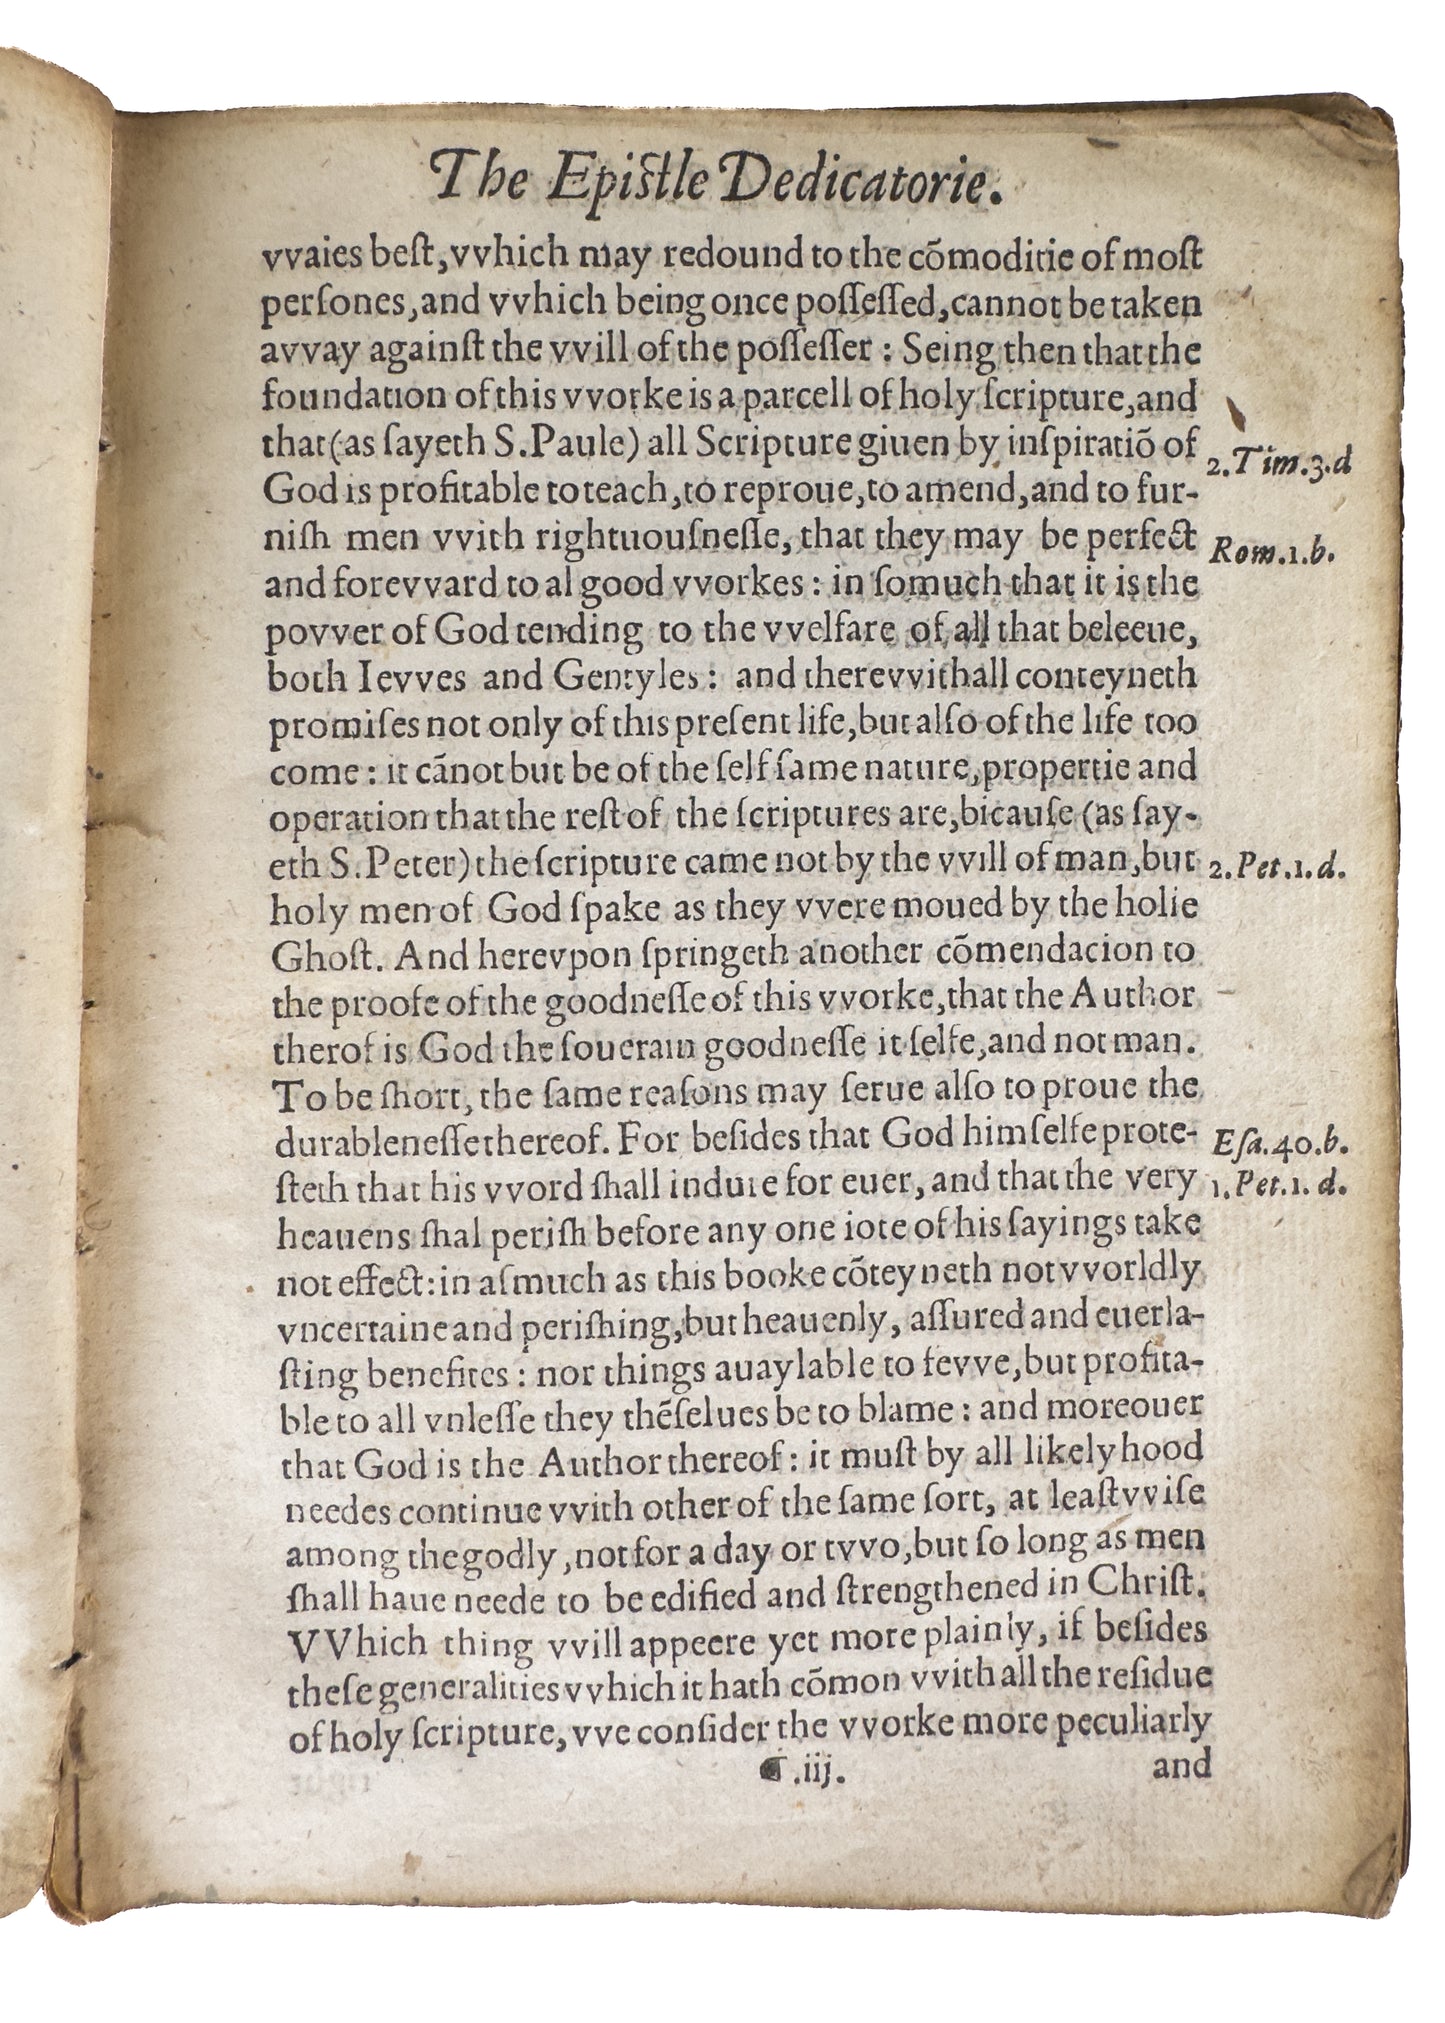 The Epistle Dedicatorie.
vvaies beſt, vvhich may redound to the cōmoditie of moſt
perſones, and vvhich being once poſſeſſed, cannot be taken
avvay againſt the vvill of the poſſeſſer : Seing then that the
foundation of this vvorke is a parcell of holy ſcripture, and
that (as ſayeth S. Paule) all Scripture giuen by inſpiratiō of
2. Tim. 3. d
God is profitable to teach, to reproue, to amend, and to fur-
niſh men vvith rightuouſneſſe, that they may be perfect
Rom. 1. b.
and forevvard to al good vvorkes : in ſomuch that it is the
povver of God tending to the vvelfare of all that beleeue,
both Ievves and Gentyles : and therevvithall conteyneth
promiſes not only of this preſent life, but alſo of the life too
come : it cānot but be of the ſelf ſame nature, propertie and
operation that the reſt of the ſcriptures are, bicauſe (as ſay-
eth S. Peter) the ſcripture came not by the vvill of man, but
2. Pet. 1. d.
holy men of God ſpake as they vvere moued by the holie
Ghoſt. And herevpon ſpringeth another cōmendacion to
the proofe of the goodneſſe of this vvorke, that the Author
therof is God the ſouerain goodneſſe it ſelfe, and not man.
To be ſhort, the ſame reaſons may ſerue alſo to proue the
durableneſſe thereof. For beſides that God himſelfe prote-
Eſa. 40. b.
ſteth that his vvord ſhall indure for euer, and that the very
1. Pet. 1. d.
heauens ſhal periſh before any one iote of his ſayings take
not effect : in aſmuch as this booke cōteyneth not vvorldly
vncertaine and periſhing, but heauenly, aſſured and euerla-
ſting benefites : nor things auaylable to fevve, but profita-
ble to all vnleſſe they thēſelues be to blame : and moreouer
that God is the Author thereof : it muſt by all likelyhood
needes continue vvith other of the ſame ſort, at leaſtvviſe
among the godly, not for a day or tvvo, but ſo long as men
ſhall haue neede to be edified and ſtrengthened in Chriſt.
VVhich thing vvill appeere yet more plainly, if beſides
theſe generalities vvhich it hath cōmon vvith all the reſidue
of holy ſcripture, vve conſider the vvorke more peculiarly
☛.iij.
and